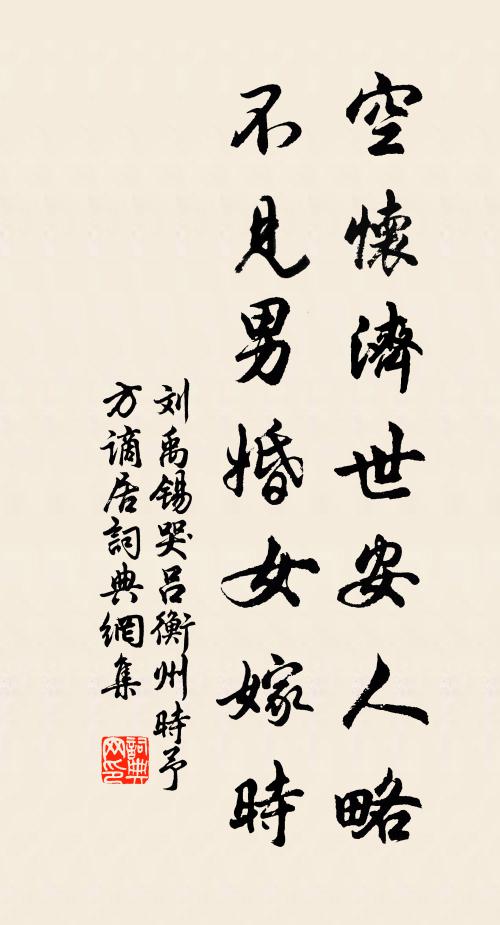 空懷濟世安人略
不見男婚女嫁時
刘禹锡哭吕衡州時予
方谪居詞典網集
詞典
网印